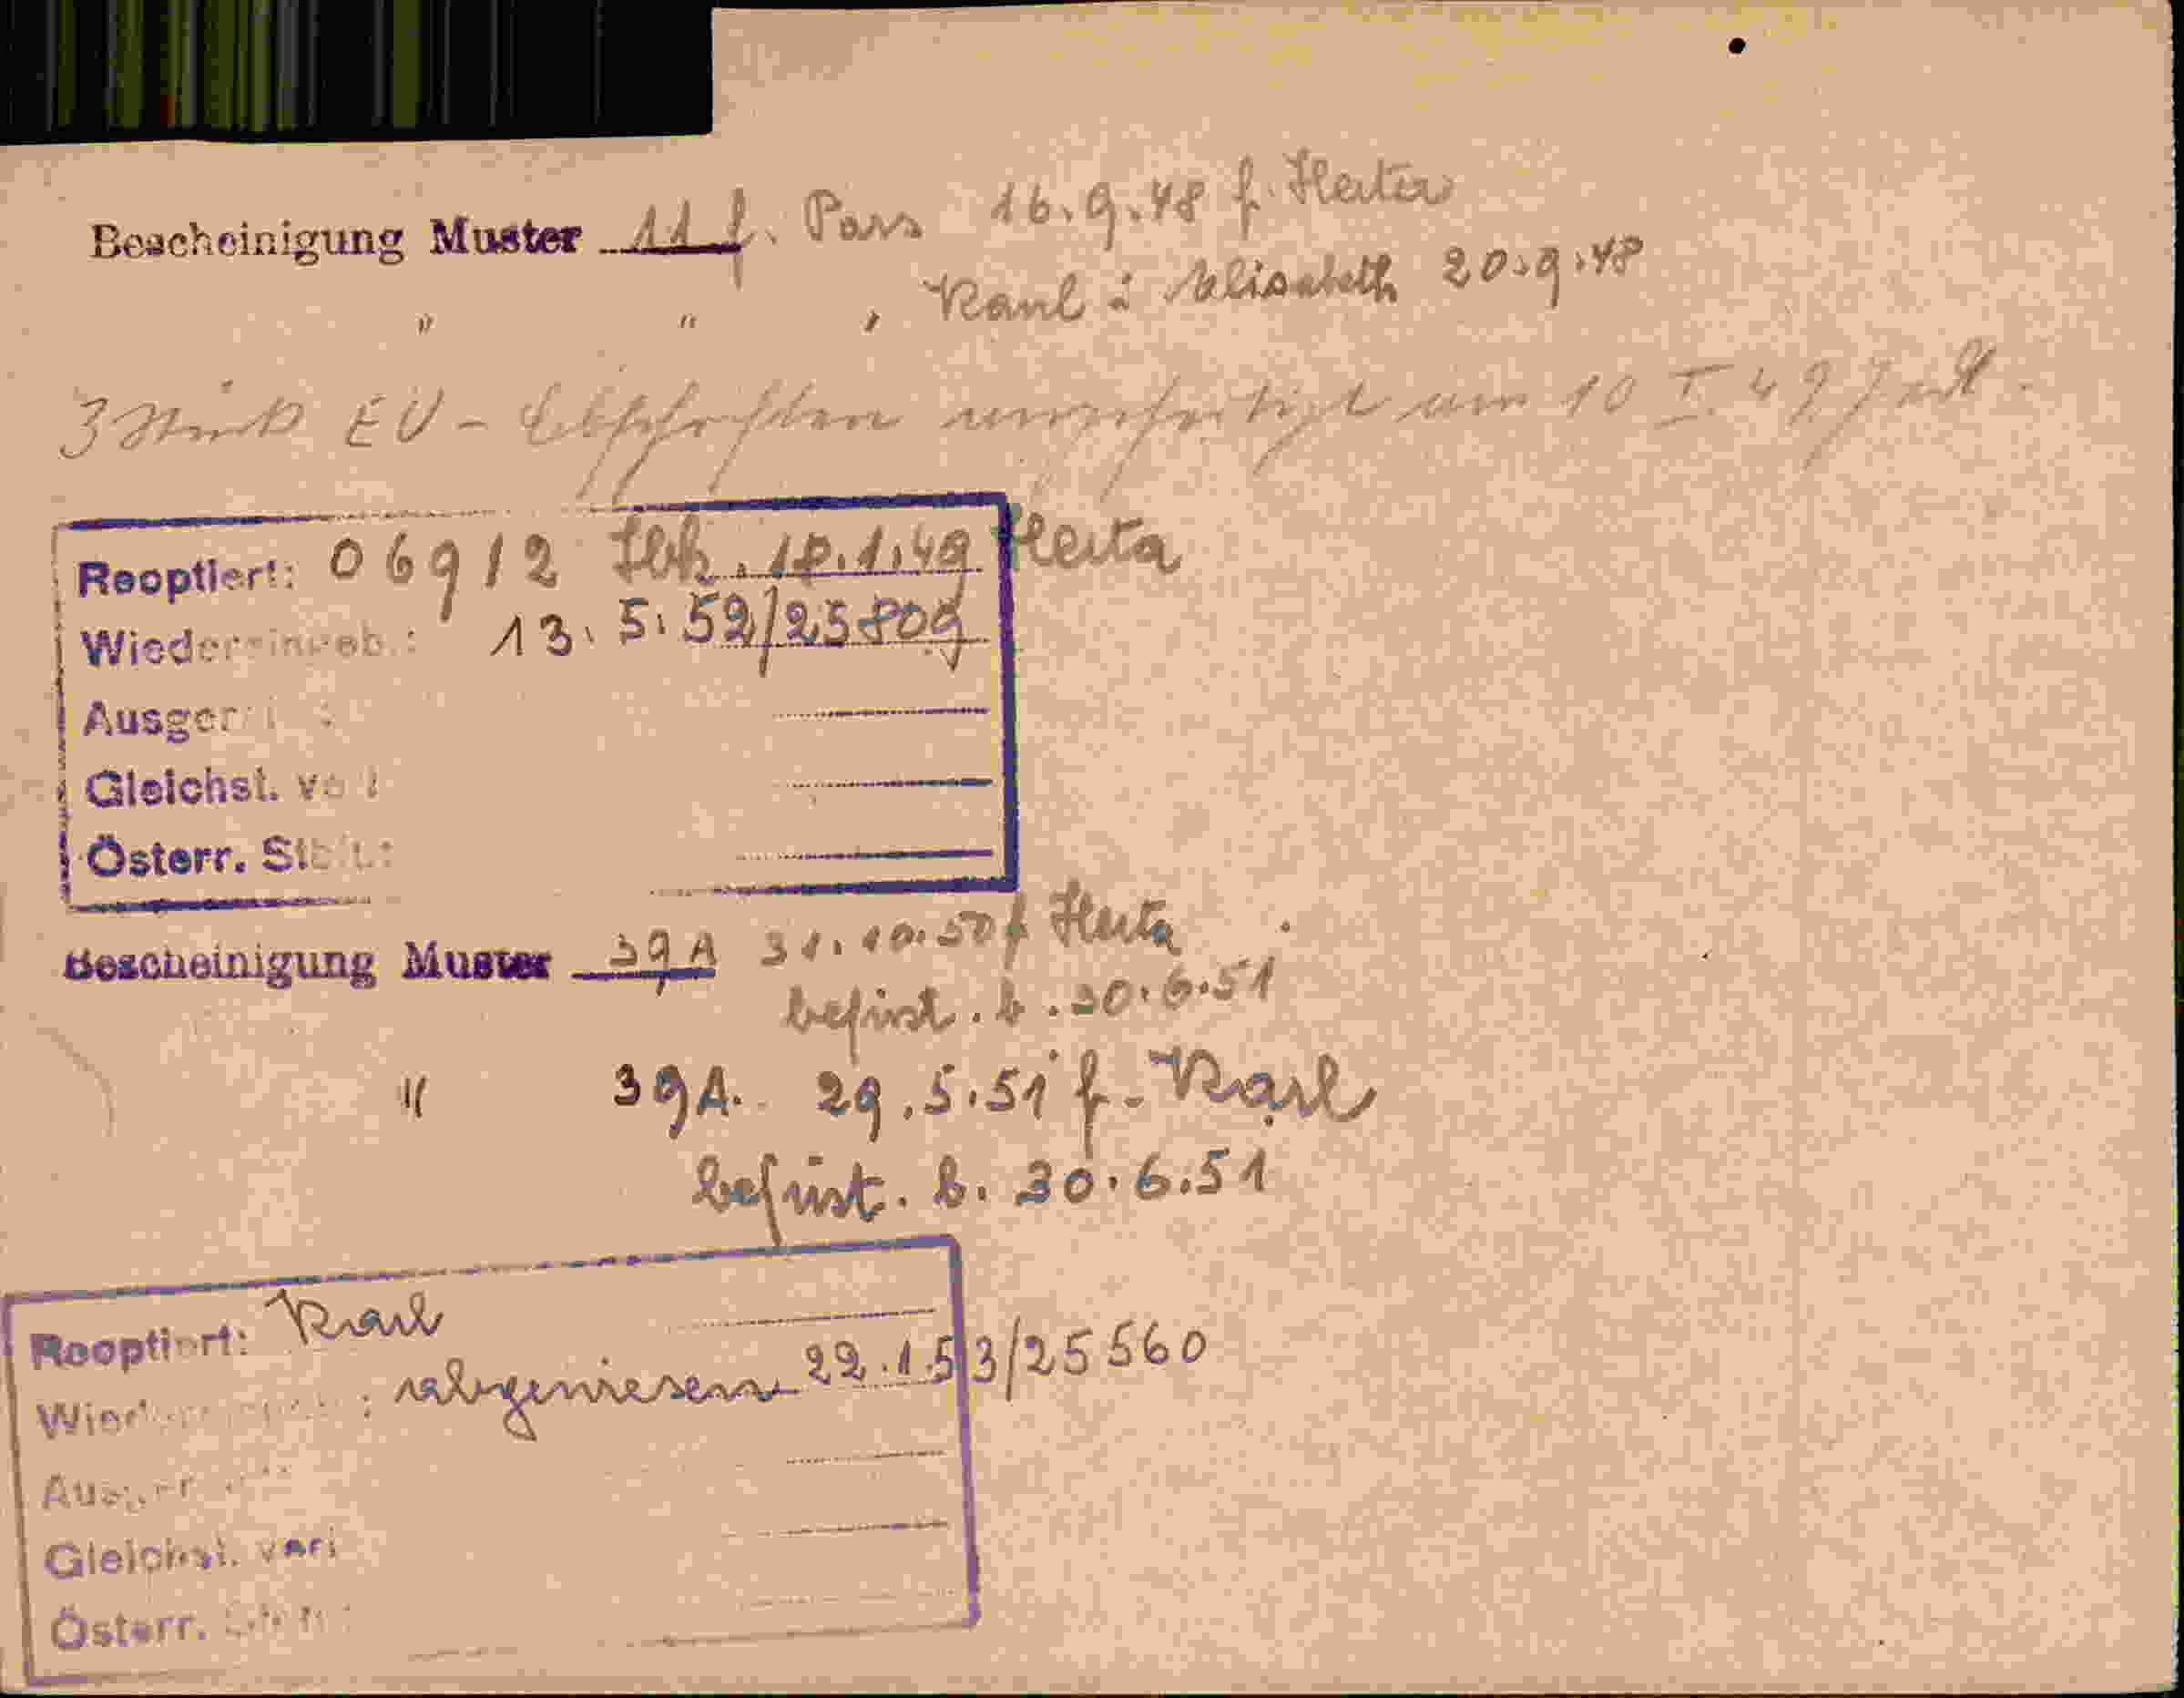 Bescheinigung Muster 11 f. Pass 16.9.48 f. Herta
" " " Karl u Elisabeth 20.9.48
3 Stück EU - Abschriften ausgefertigt am 10 I. 49
Reoptiert: 06912 Ibk. 18.1.49 Herta
Wiedereingeb.: 13.5.52/25809
Ausger
Gleichst. ve
Österr. Stb
Bescheinigung Muster 39A 31.10.50 f Herta
befrist. b. 30.6.51
" 39A. 29.5.51 f. Karl
befrist. b. 30.6.51
Reoptiert: Karl
Wied : abgewiesen 22.1.53/25560
Ausger
Gleichst. verl
Österr.